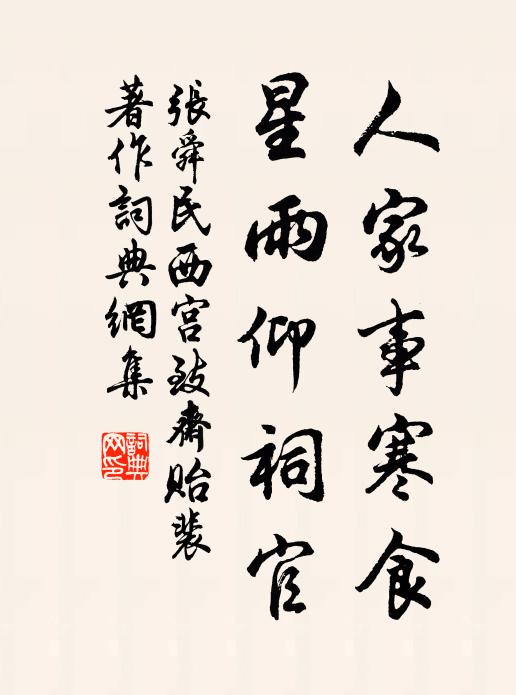 人家事寒食
星雨仰祠官
張舜民西宮致齋貽裴
著作詞典網集
詞典網印